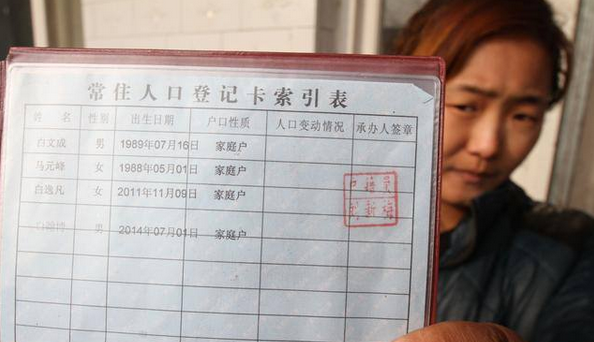 常住人口登记卡索引表
姓 名 性别 出生日期 户口性质 人口变动情况 承办人签章
白文成 男 1989年07月16日 家庭户
马元峰 女 1988年05月01日 家庭户
白逸凡 女 2011年11月09日 家庭户
男 2014年07月01日 家庭户